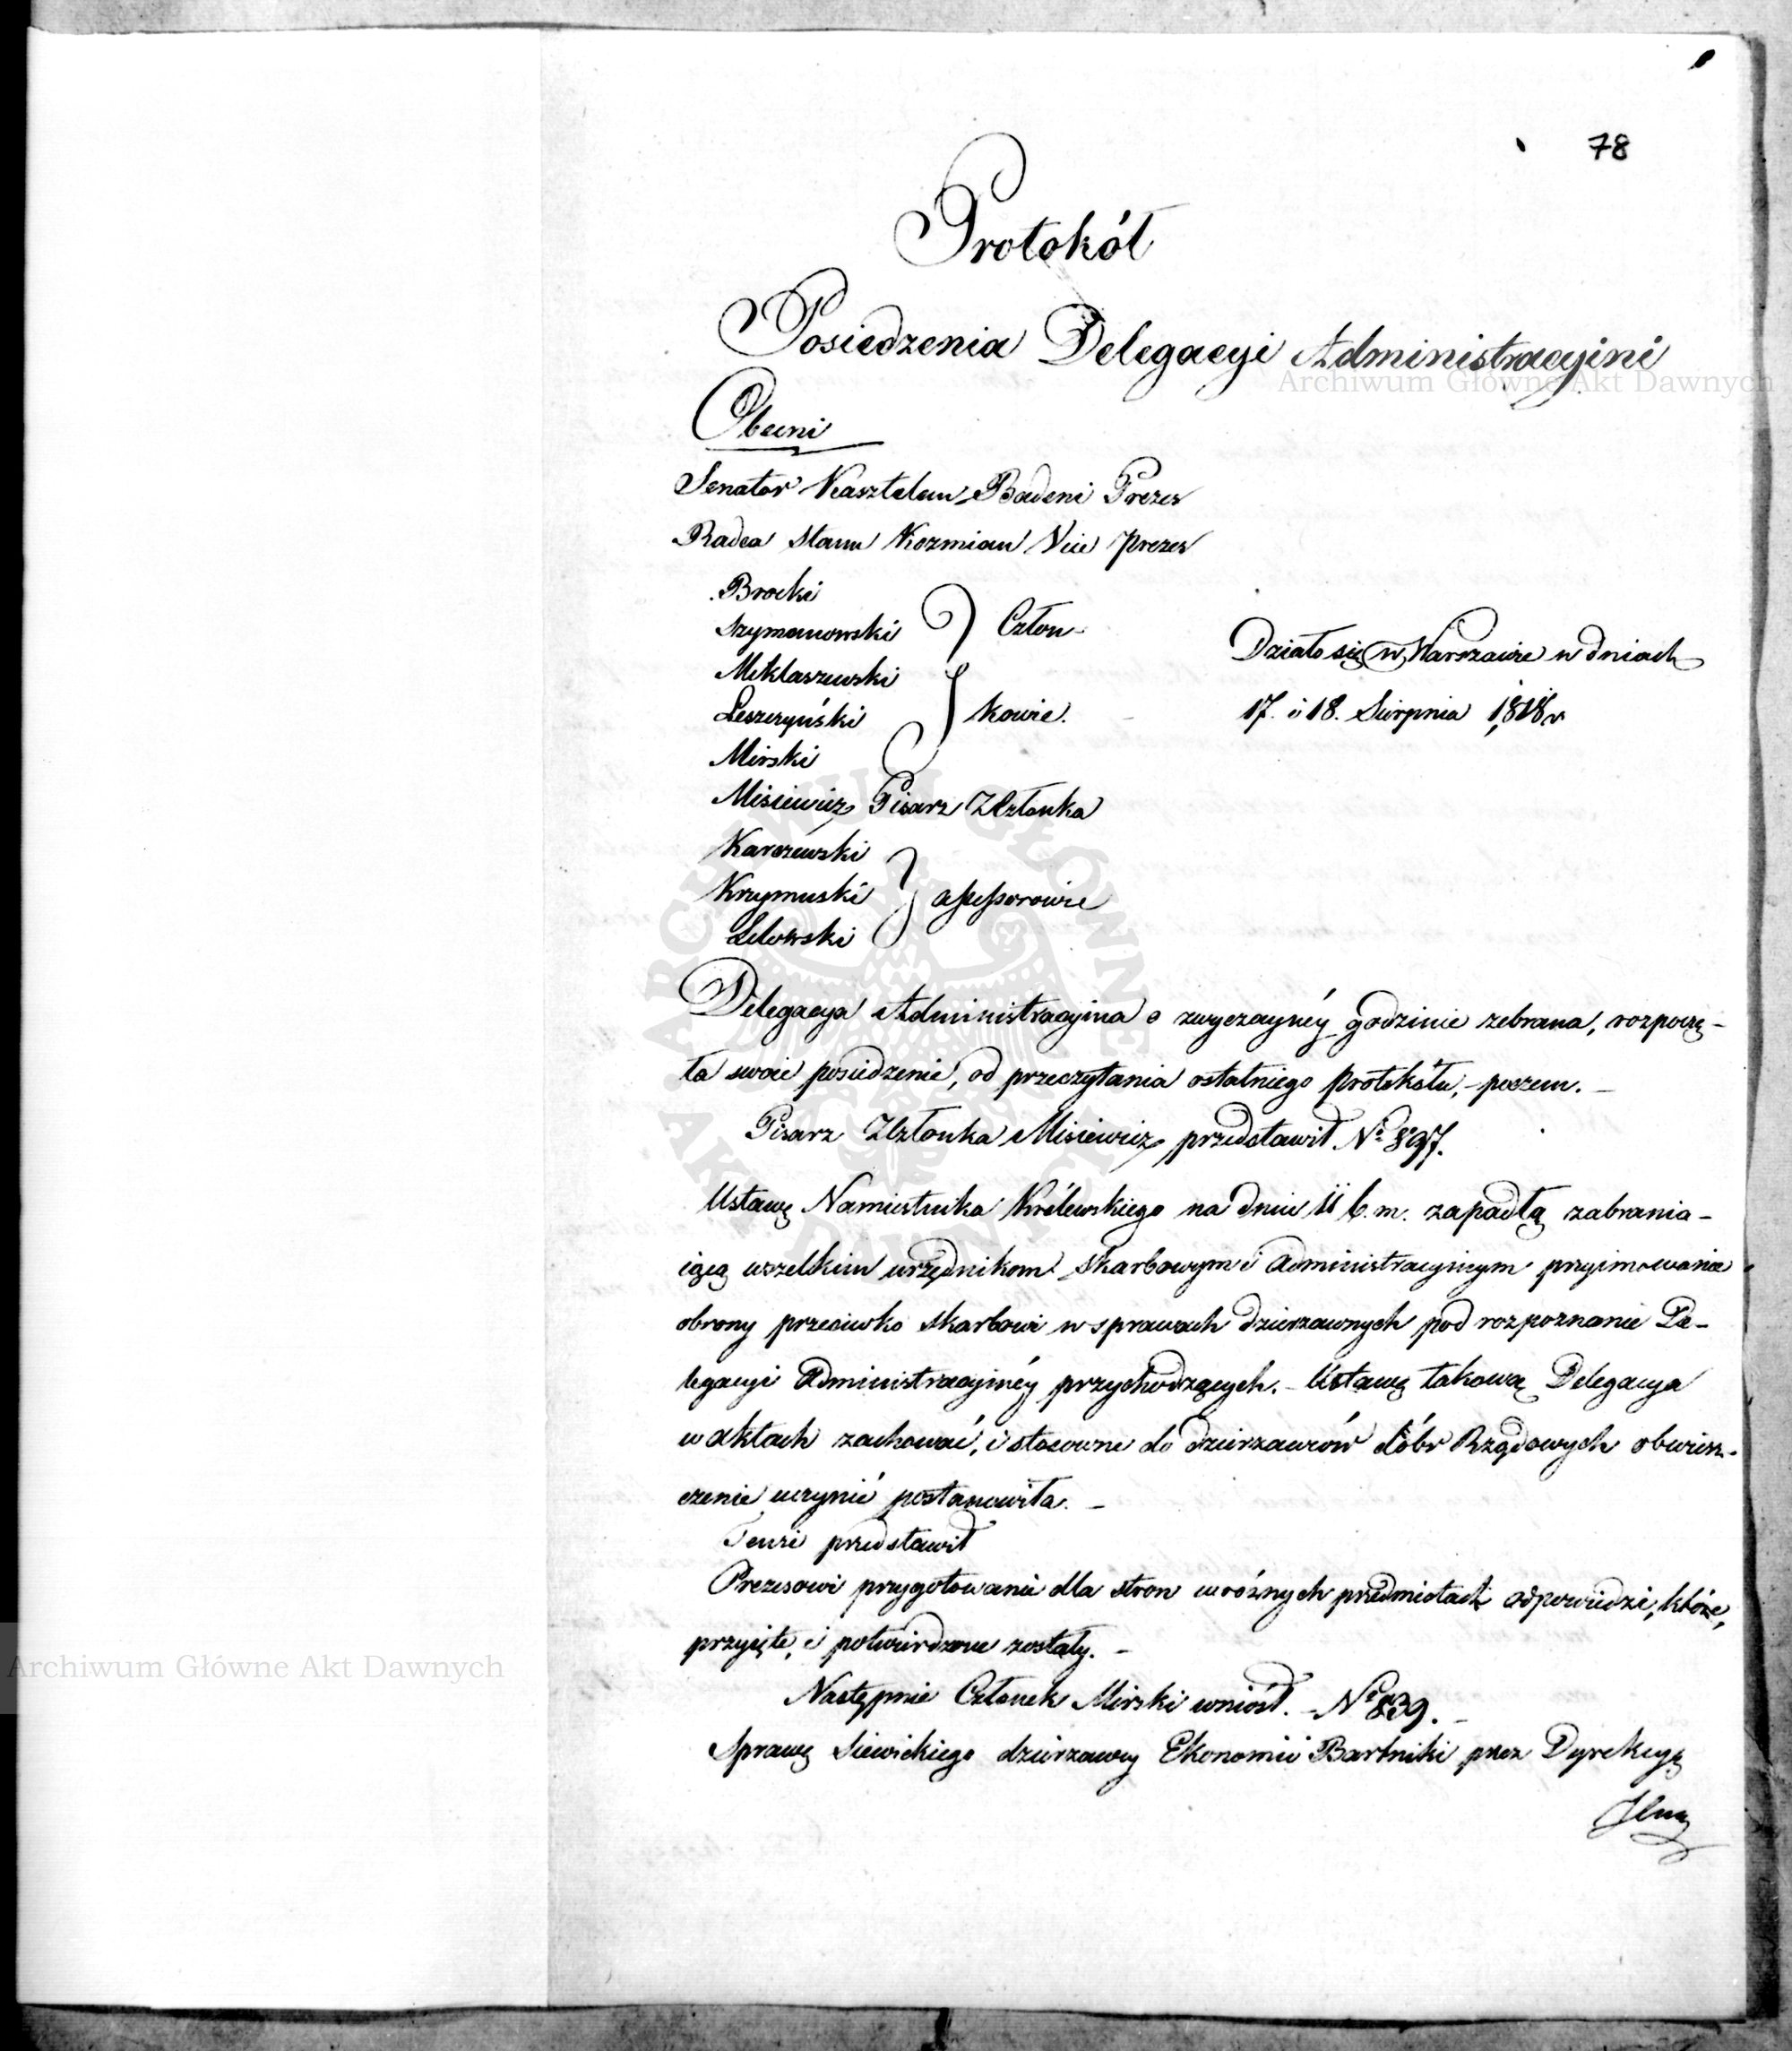 78
Protokół
Posiedzenia Delegacyi Administracyini
Archiwum Główne Akt Dawnych
Obecni
Senator Kasztelan Badeni Prezes
Radca Stanu Kozmian Vice Prezes
Brocki
Szymanowski
Miklaszewski
Leszczyński
Mirski
Człon-
kowie.
Działo się w Warszawie w dniach
17. i 18. Sierpnia 1818 r
Misiewicz Pisarz Zczłonka
Karczewski
Krzymuski
Lelowski
assessorowie
ARCHIWUM GŁÓWNE AKT DAWNYCH
Delegacya Administracyina o zwyczayney godzinie zebrana, rozpoczę-
ła swoie posiedzenie, od przeczytania ostatniego Protokółu, poczem. -
Pisarz Zczłonka Misiewicz przedstawił No 897.
Ustawę Namiestnika Królewskiego na dniu 11 b. m. zapadłą zabrania-
iącą wszelkim urzędnikom skarbowym i Administracyinym przyimowania
obrony przeciwko skarbowi w sprawach dzierzawnych pod rozpoznanie De-
legacyi Administracyinéy przychodzących. - Ustawę takową Delegacya
w aktach zachować, i stosowne do dzierzawców dóbr Rządowych obwiesz-
czenie uczynić postanowiła. -
Tenże przedstawił
Prezesowi przygotowanie dla stron w różnych przedmiotach odpowiedzi, które,
przyięte, i potwierdzone zostały. -
Następnie Członek Mirski wniósł. - No 839. -
Archiwum Główne Akt Dawnych
Sprawę Siewickiego dzierzawcy Ekonomii Bartniki przez Dyrekcyą